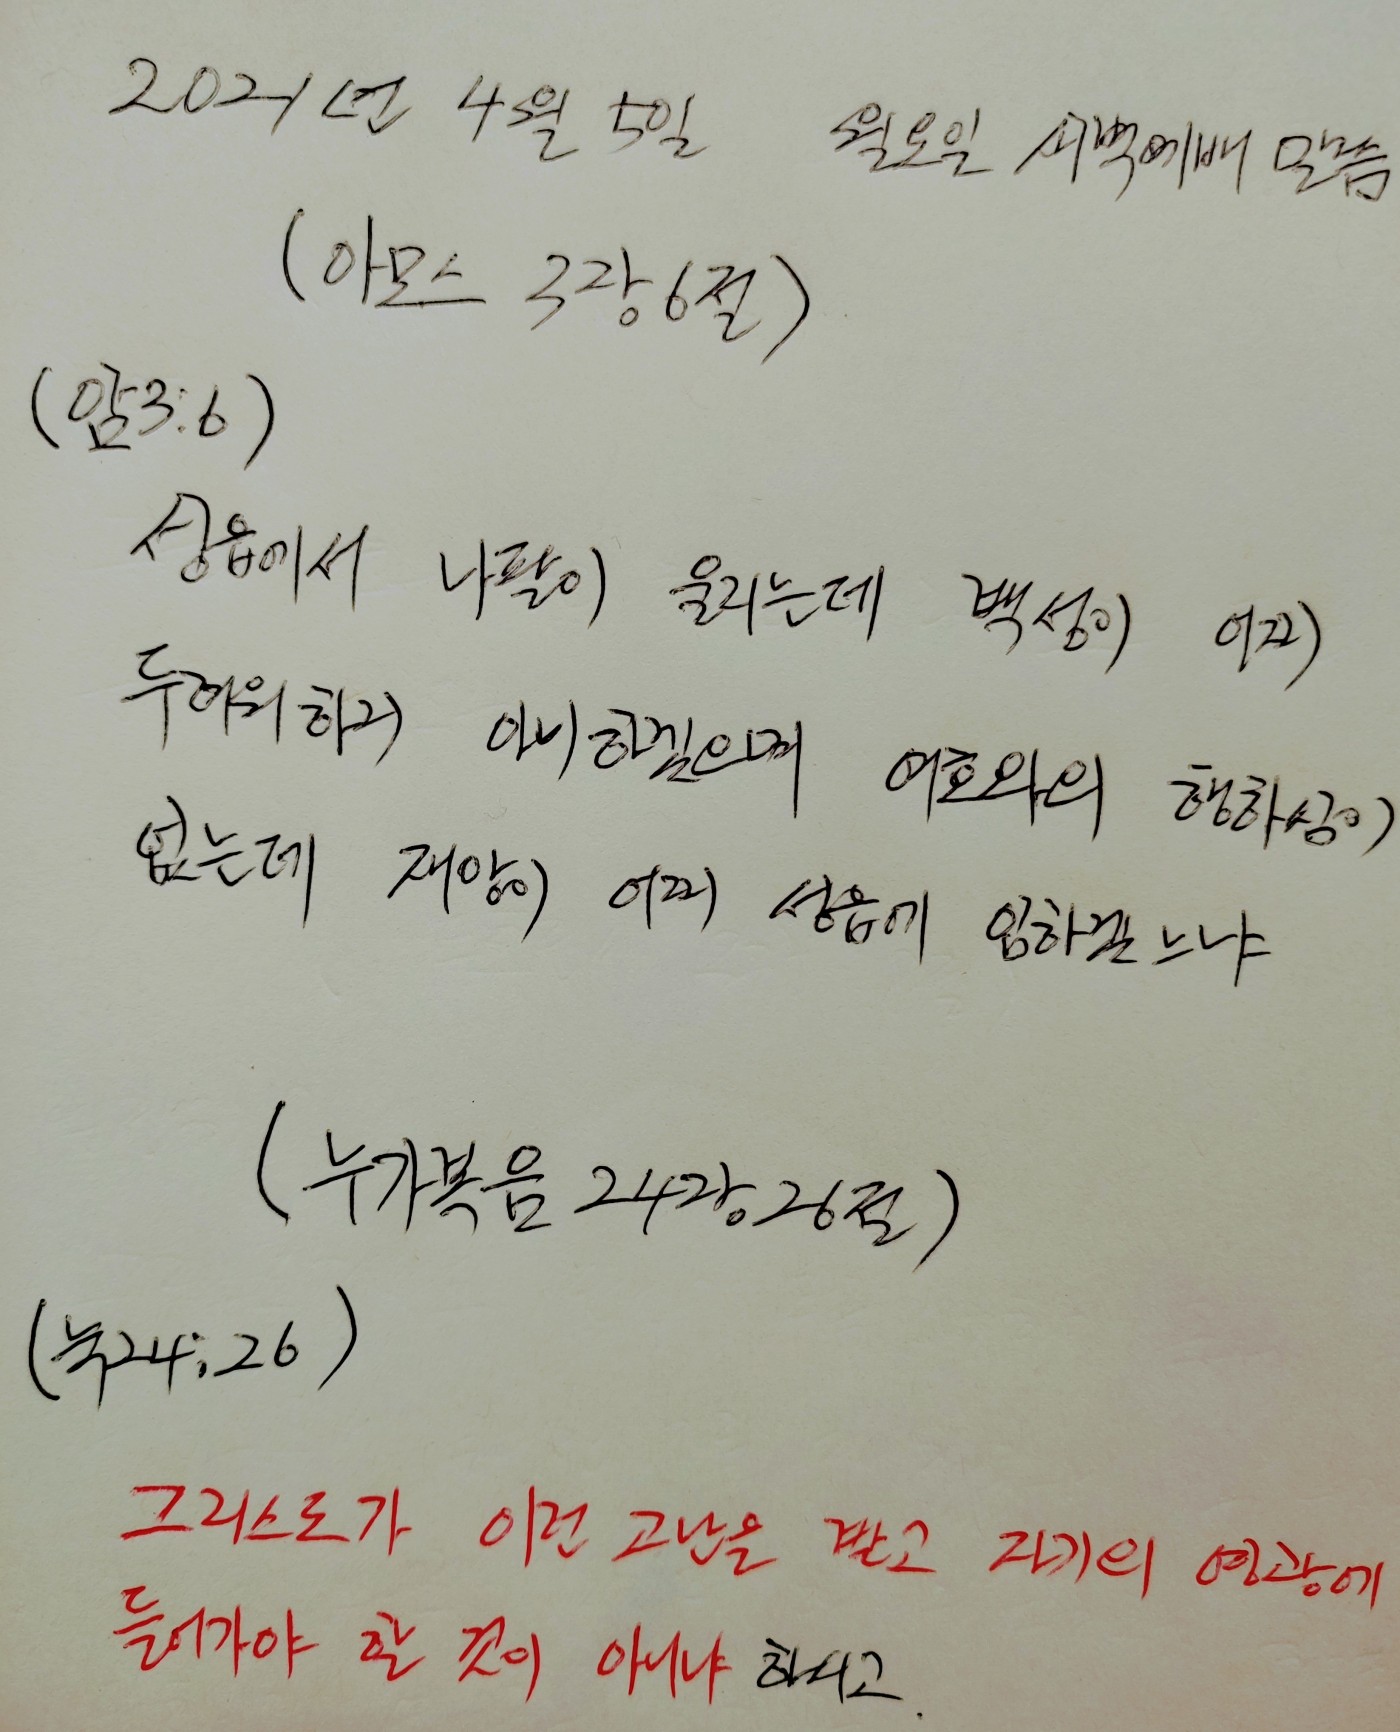 2021년 4월 5일 월요일 새벽예배 말씀
(아모스 3장 6절)
(암3:6)
성읍에서 나팔이 울리는데 백성이 어찌
두려워하지 아니하겠으며 여호와의 행하심이
없는데 재앙이 어찌 성읍에 임하겠느냐
(누가복음 24장 26절)
(눅24:26)
그리스도가 이런 고난을 받고 자기의 영광에
들어가야 할 것이 아니냐 하시고.